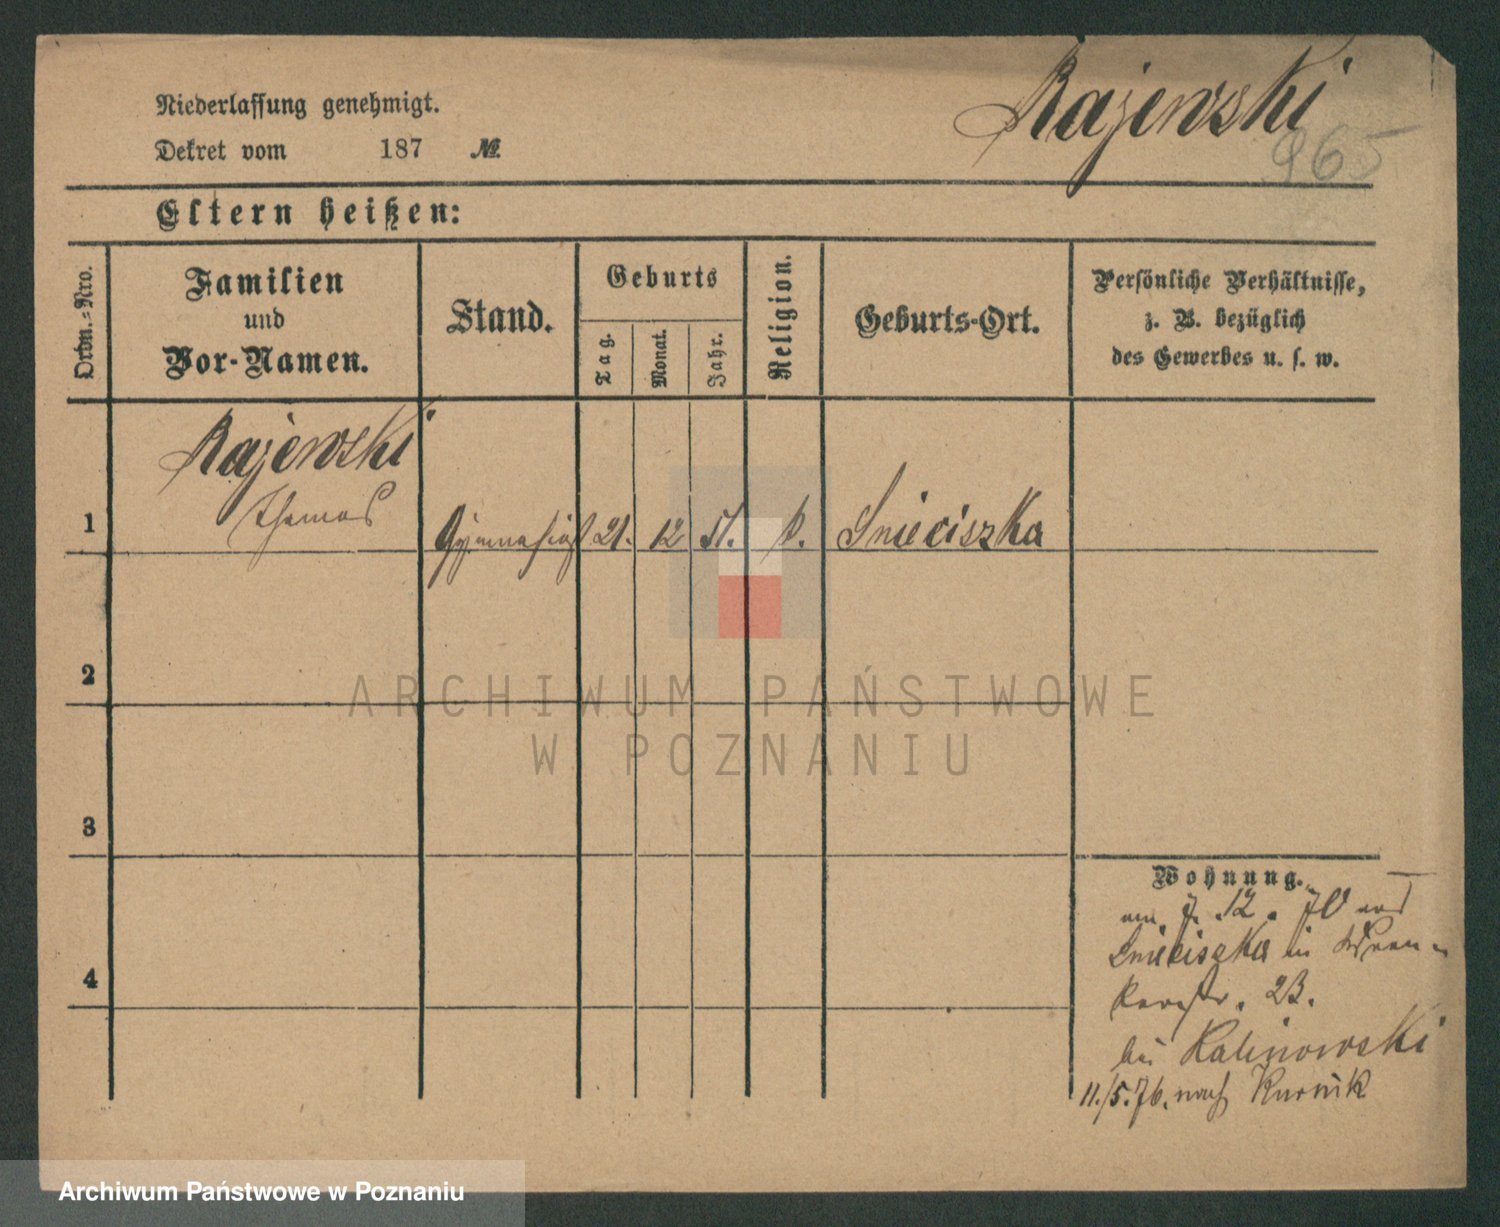 Rajewski
965
Niederlassung genehmigt.
Dekret vom 187 №
Eltern heißen:
Ordn.-Nro.
Familien
und
Vor-Namen.
Stand.
Geburts
Tag.
Monat.
Jahr.
Religion.
Geburts-Ort.
Persönliche Verhältnisse,
z. B. bezüglich
des Gewerbes u. s. w.
Rajewski
Thomas
1 Gymnasiast 21. 12 51. k. Snieciszka
2
ARCHIWUM PAŃSTWOWE
W POZNANIU
3
4
Wohnung.
am 7. 12. 70 aus
Snieciszka in
23.
bei Kalinowski
11./5. 76. nach Kurnik
Archiwum Państwowe w Poznaniu